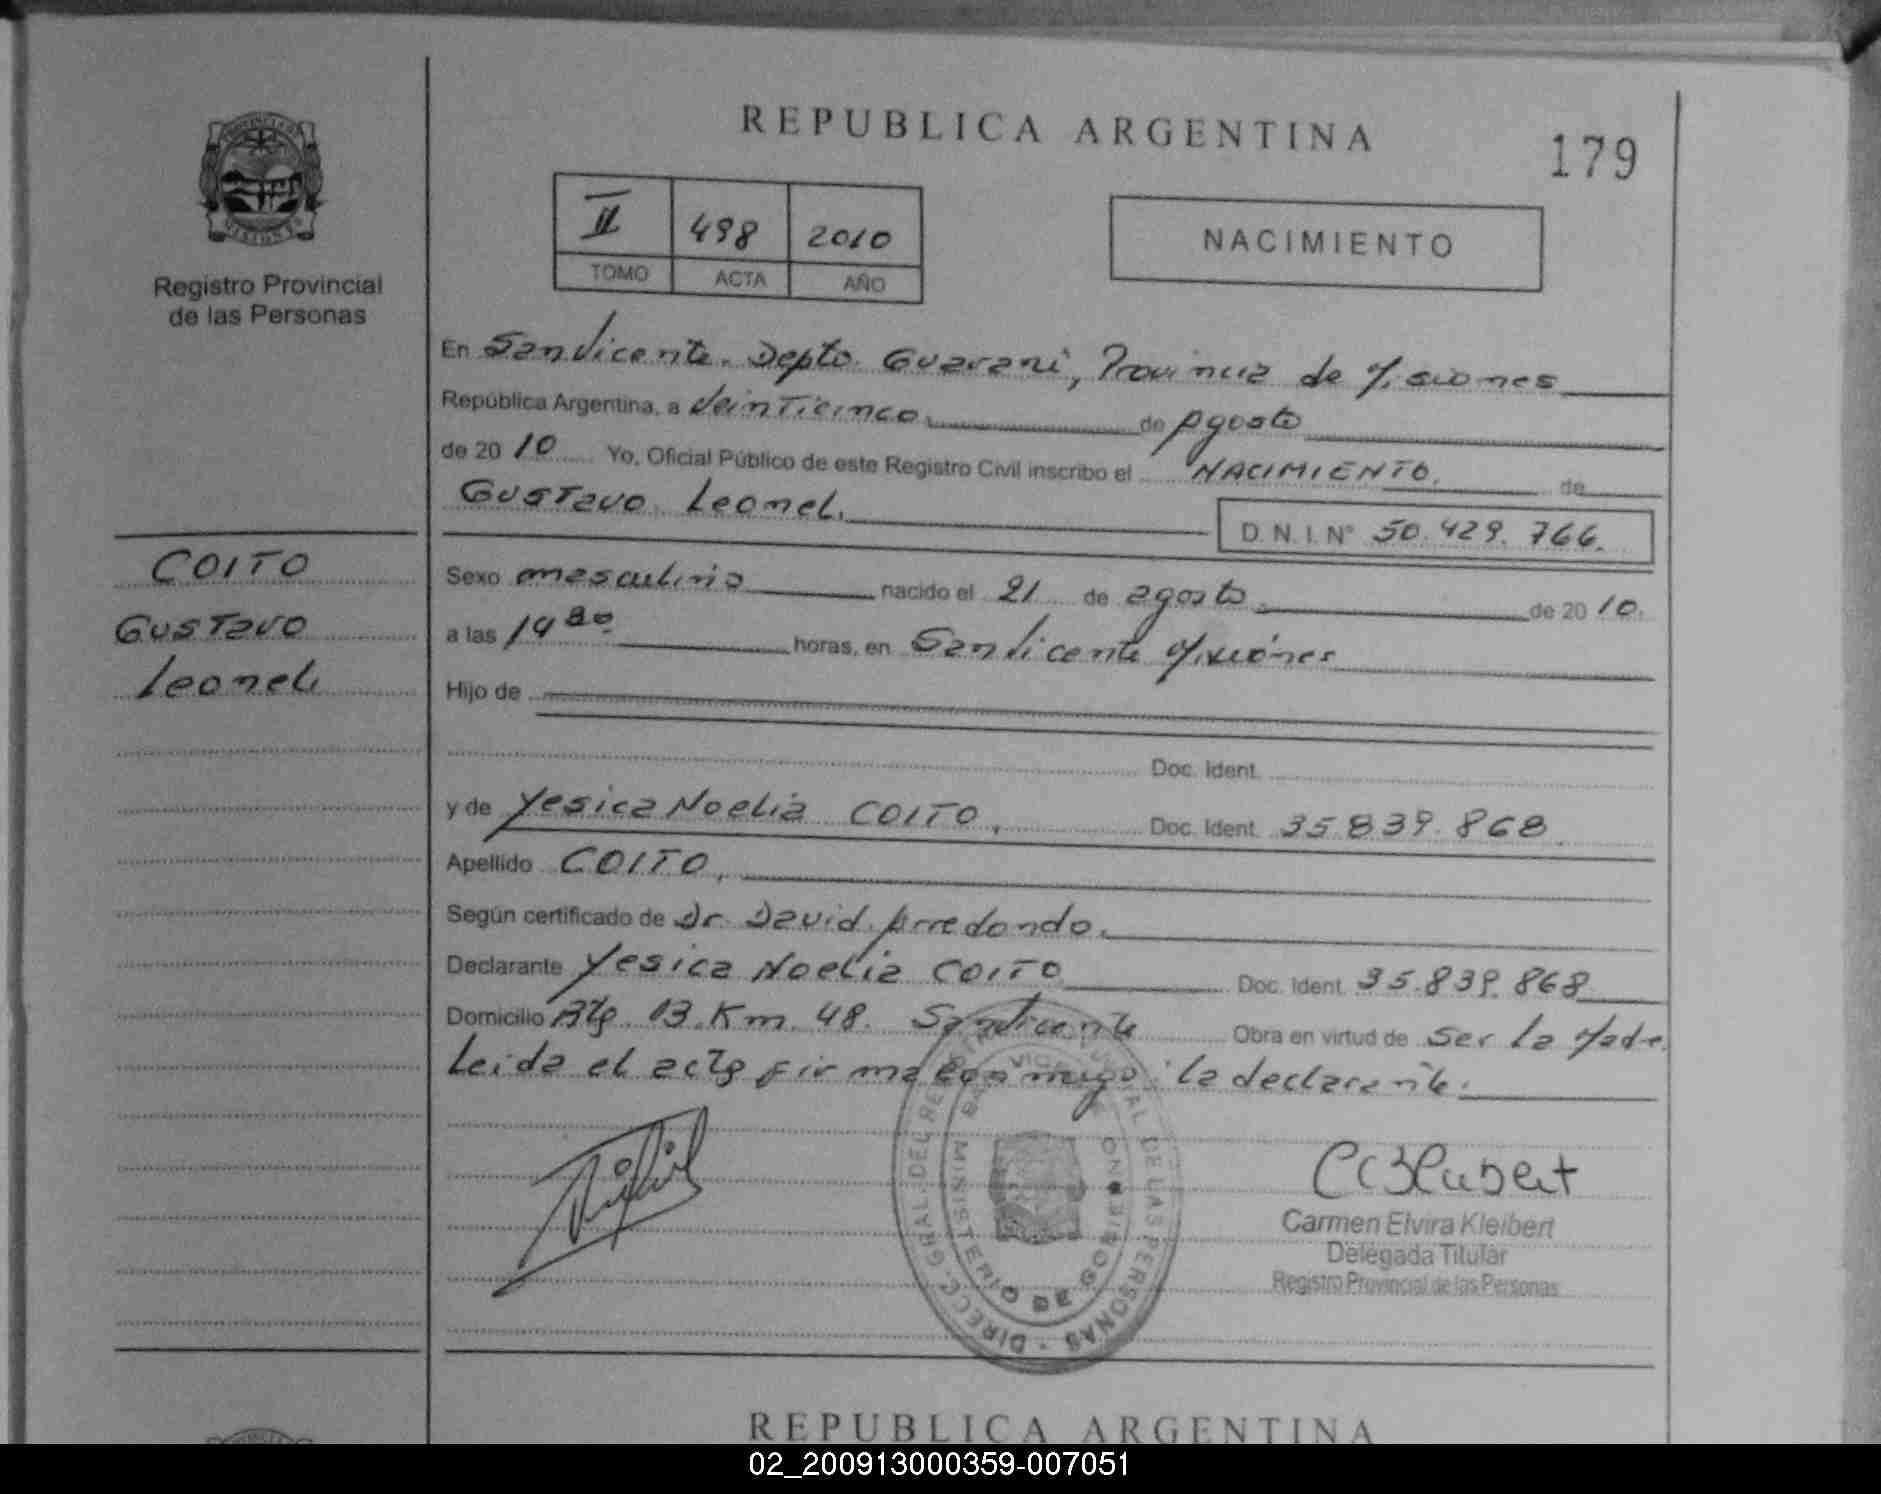 PROVINCIA DE
MISIONES
Registro Provincial
de las Personas
COITO
Gustavo
Leonel
REPUBLICA ARGENTINA
179
II 498 2010
TOMO ACTA AÑO
NACIMIENTO
En San Vicente. Depto. Guarani, Provincia de Misiones
República Argentina, a Veinticinco. de Agosto
de 20 10 Yo, Oficial Público de este Registro Civil inscribo el NACIMIENTO. de
Gustavo Leonel.
D. N. I. N° 50.429.766.
Sexo masculino nacido el 21 de agosto. de 20 10.
a las 14 horas, en San Vicente Misiones
Hijo de
Doc. Ident.
y de Yesica Noelia COITO, Doc. Ident. 35.839.868
Apellido COITO,
Según certificado de Dr. David Arredondo.
Declarante Yesica Noelia COITO Doc. Ident. 35.839.868
Domicilio Km. 48. San Vicente Obra en virtud de ser la Madre.
Leida el acta firma conmigo: la declarante.
DIRECC. GRAL. DEL REGISTRO PROVINCIAL DE LAS PERSONAS
MINISTERIO DE GOBIERNO
Carmen Elvira Kleibert
Delegada Titular
Registro Provincial de las Personas
REPUBLICA ARGENTINA
02_200913000359-007051